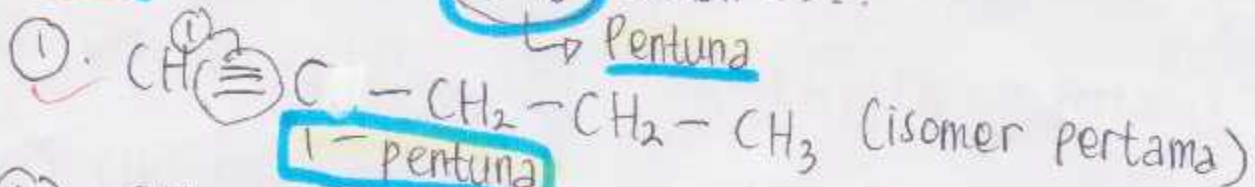 Pentuna
①. CH≡C-CH₂-CH₂-CH₃ (isomer pertama)
①
1- pentuna